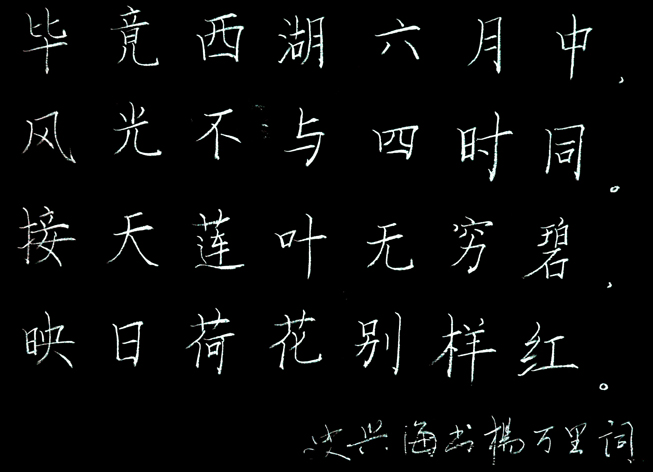 毕竟西湖六月中，
风光不与四时同。
接天莲叶无穷碧，
映日荷花别样红。
史兴海书楊万里词